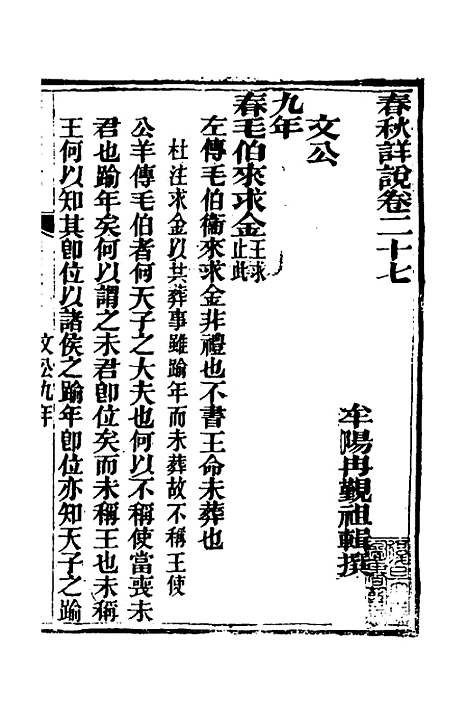 春秋詳說卷二十七
牟陽冉覲祖輯撰
文公
九年
春毛伯來求金王求止此
左傳毛伯衞來求金非禮也不書王命未葬也
杜注求金以共葬事雖踰年而未葬故不稱王使
公羊傳毛伯者何天子之大夫也何以不稱使當喪未
君也踰年矣何以謂之未君卽位矣而未稱王也未稱
王何以知其卽位以諸侯之踰年卽位亦知天子之踰
文公九年